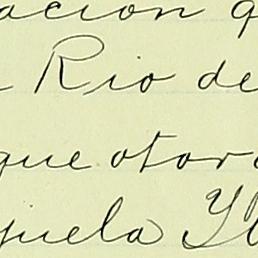 acion q
Rio de
que otor
uela Yl